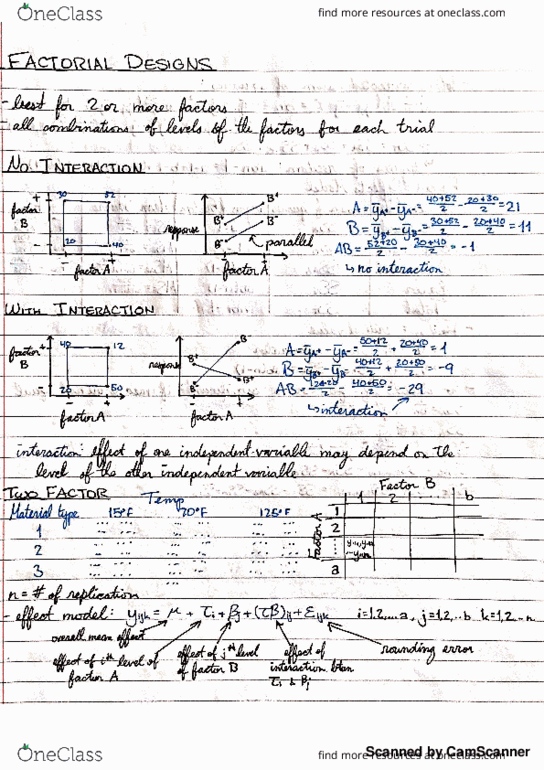 OneClass
find more resources at oneclass.com
FACTORIAL DESIGNS
- best for 2 or more factors
- all combinations of levels of the factors for each trial
NO INTERACTION
factor B
+
-
30 52
20 40
- +
factor A
response
B+ B+
B- B-
parallel
- +
factor A
A = ȳA+ - ȳA- = 40+52/2 - 20+30/2 = 21
B = ȳB+ - ȳB- = 30+52/2 - 20+40/2 = 11
AB = 52+20/2 - 30+40/2 = -1
↳ no interaction
WITH INTERACTION
factor B
+
-
40 12
20 50
- +
factor A
response
B+ B-
B- B+
- +
factor A
A = ȳA+ - ȳA- = 50+12/2 + 20+40/2 = 1
B = ȳB+ - ȳB- = 40+12/2 + 20+50/2 = -9
AB = 12+20/2 - 40+50/2 = -29
↳ interaction
interaction: effect of one independent variable may depend on the
level of the other independent variable
TWO FACTOR
Temp
Material type 15°F 70°F 125°F
1
2
3
Factor B
1 2 b
Factor A
1
2
a
n = # of replication
- effect model: yijk = μ + τi + βj + (τβ)ij + εijk i=1,2,...a, j=1,2,..b k=1,2,..n
overall mean effect
effect of ith level of factor A
effect of jth level of factor B
effect of interaction btwn τi & βj
rounding error
Scanned by CamScanner
OneClass
find more resources at oneclass.com